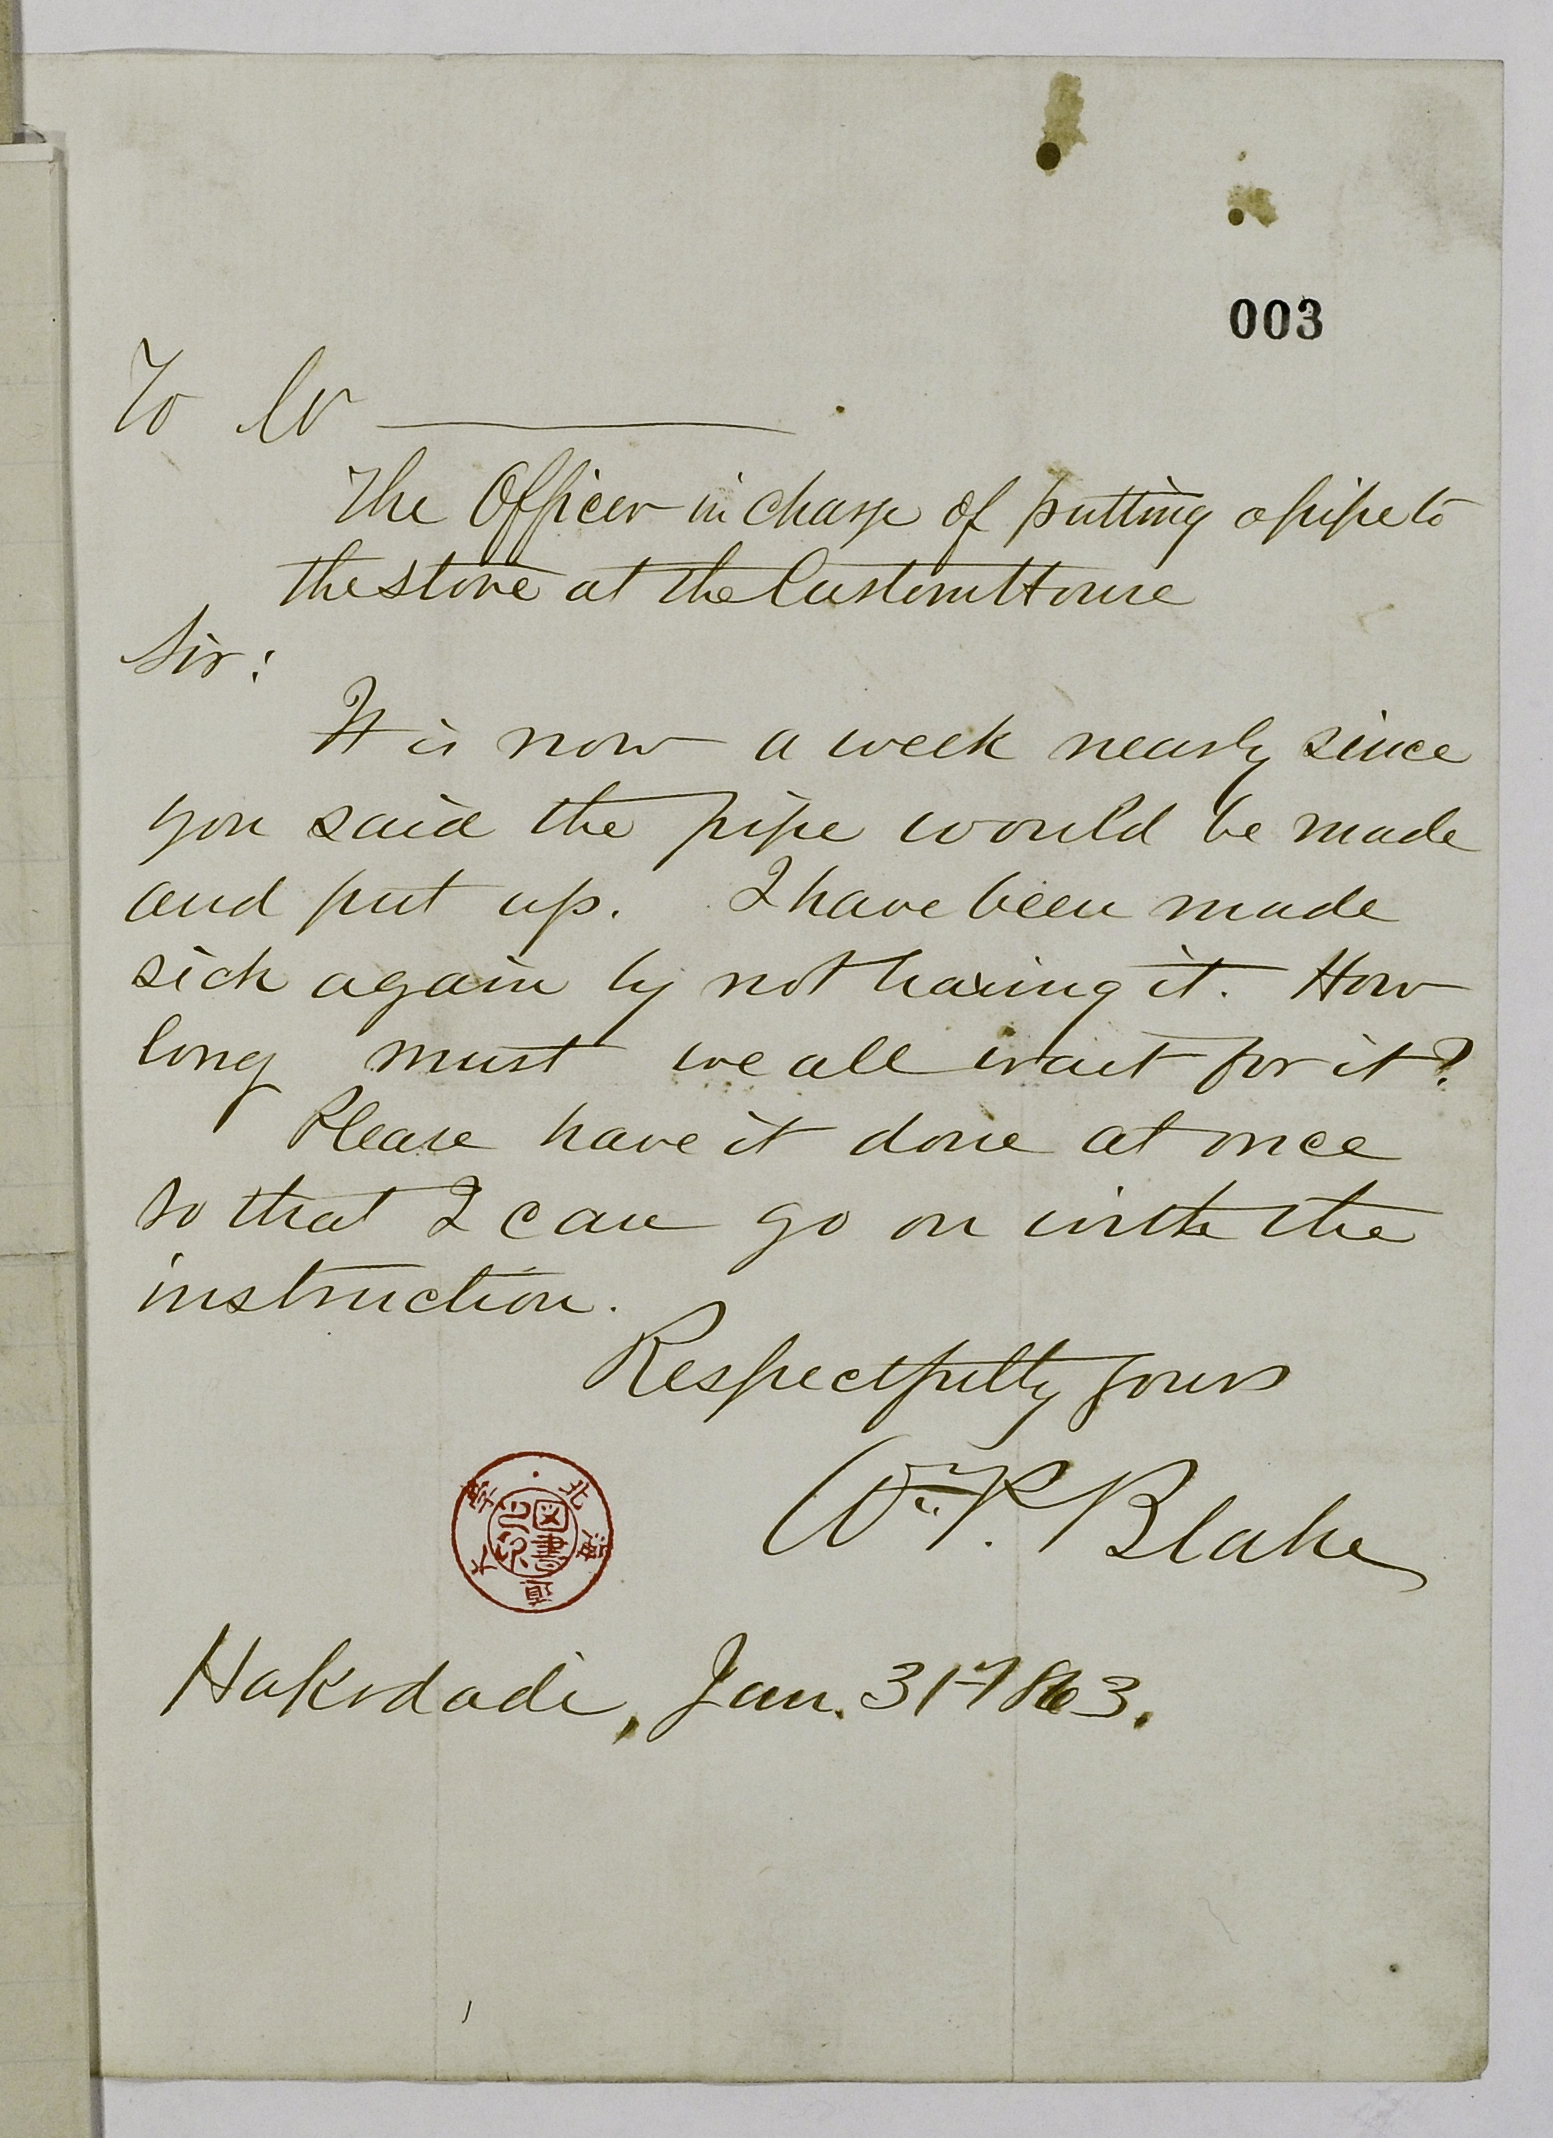 003
To
The Officer in charge of putting a pipe to
the stove at the Custom House
Sir:
It is now a week nearly since
you said the pipe would be made
and put up. I have been made
sick again by not having it. How
long must we all wait for it?
Please have it done at once
so that I can go on with the
instruction.
Respectfully yours
Wm P. Blake
北海道大学
図書之印
Hakodadi, Jan. 31 1863.